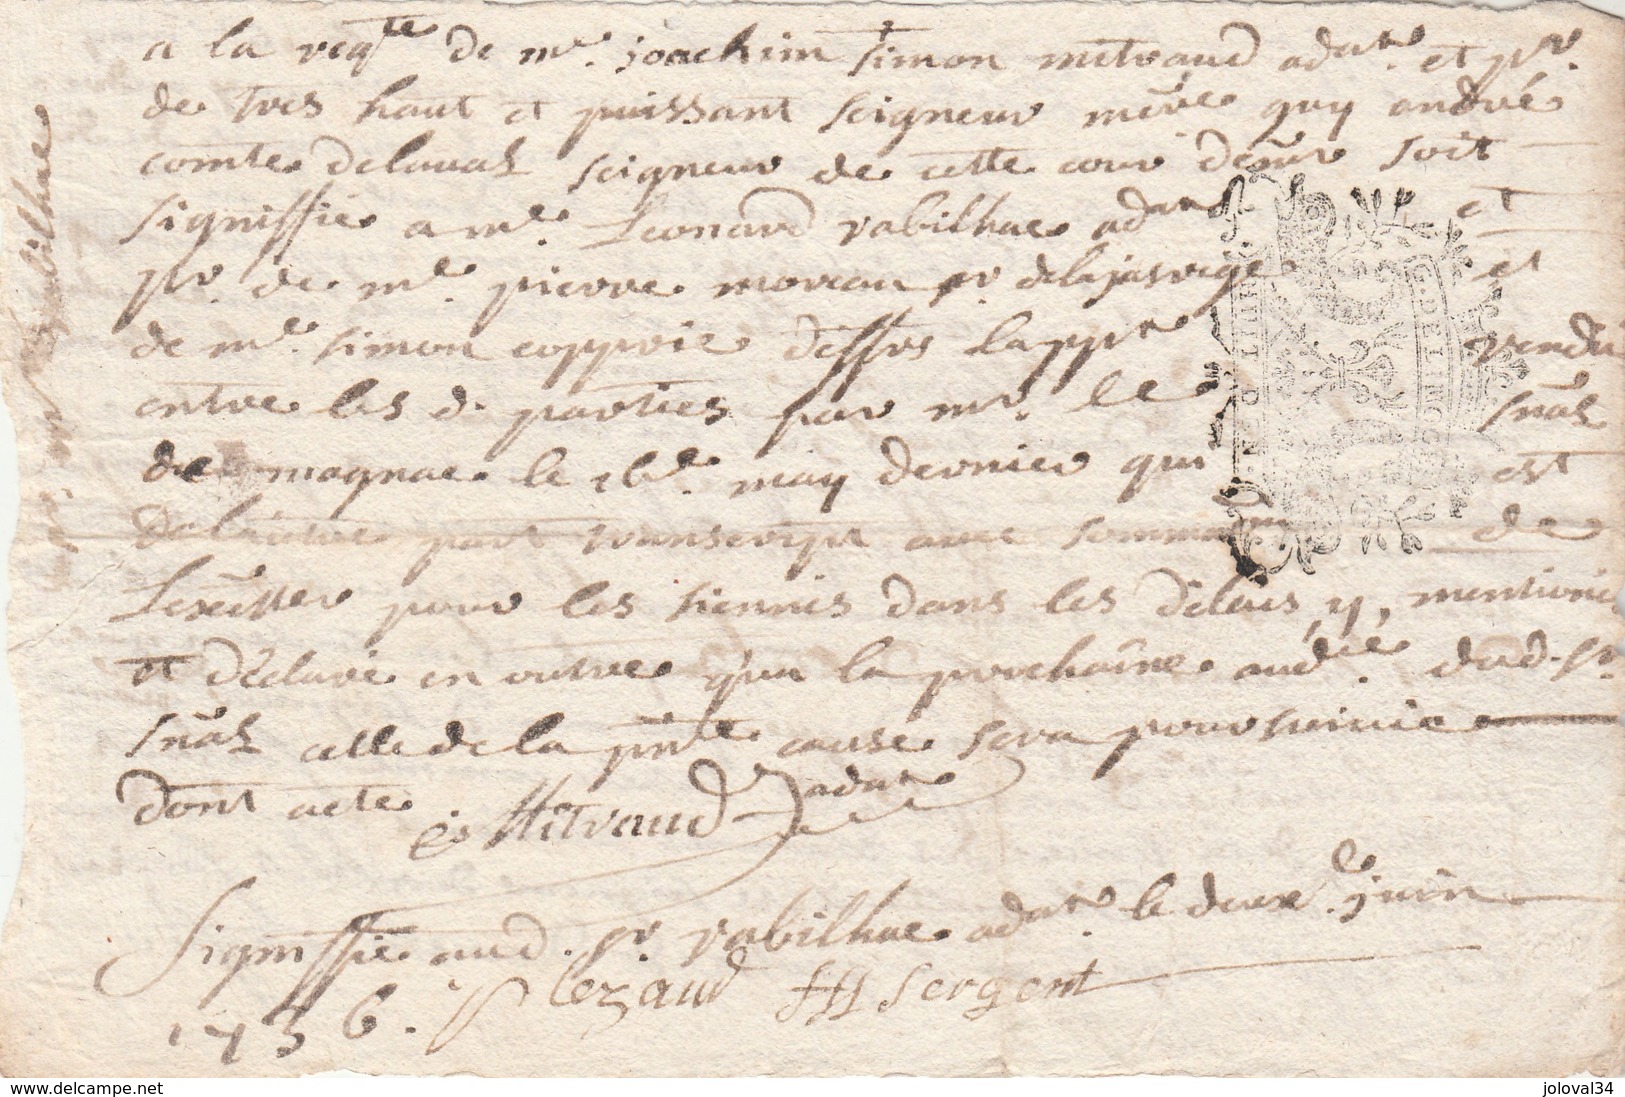 a la reqte de me. joachim simon mitraud adat. et pr.
de tres haut et puissant seigneur mere guy andré
comte delaval seigneur de cette cour soit
signiffié a me. Leonard rabilhac adat et
pr. de me. pierre moreau sr. delajasrige et
de me. simon coppoie lapp rendu
entre les d. parties par mr. le snal
de magnac le 16e. may dernier qui est
de lautre part transcript avec somma de
pour les siennes dans les délais y, mentionés
et déclaré en outre qua la prochaine audié. dud. sr
snal celle de la pnte cause sera poursuivie
dont acte. Mitraud adat
Signiffié aud. sr. rabilhac adat. le deuxe. juin
1736. Plezaud sergent
rabilhac
DELIMOGES
www.delcampe.net
joloval34